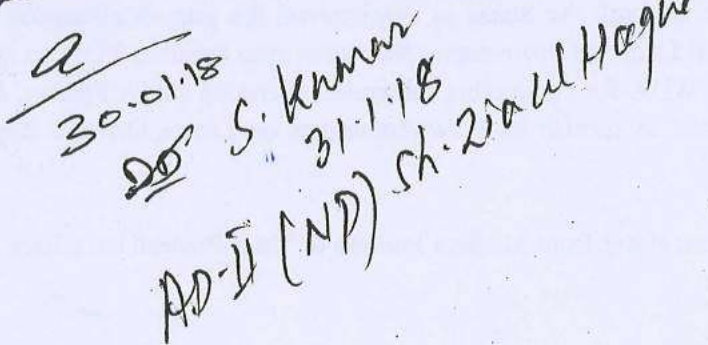 30.01.18
DD S. Kumar
31.1.18
AD-II (ND) Sh. Ziaul Haque